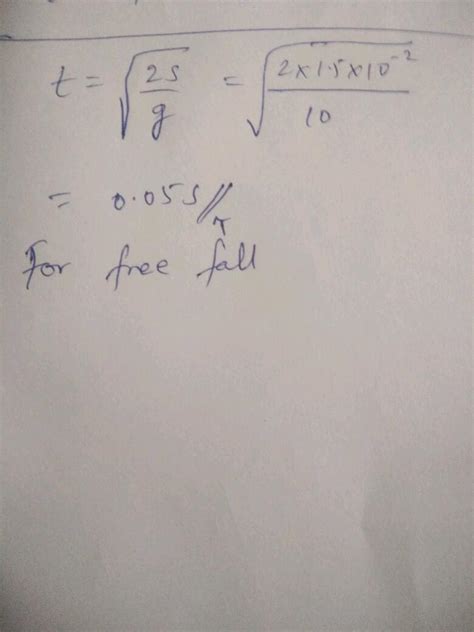 t = √(2s/g) = √(2×1.5×10⁻²/10)
= 0.05s//
For free fall